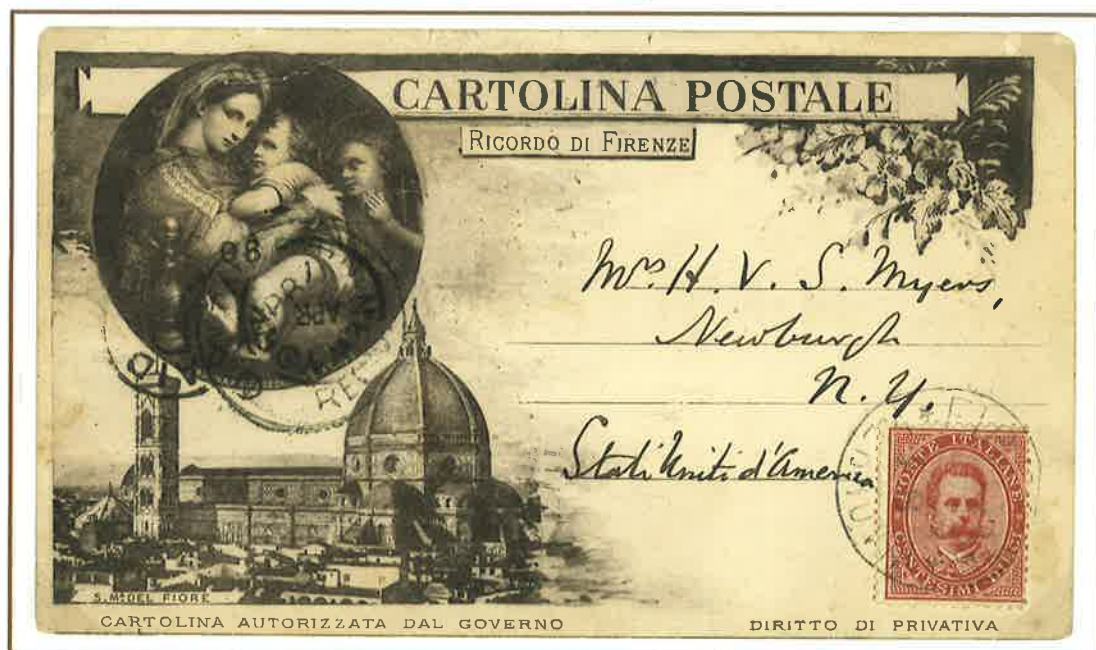 CARTOLINA POSTALE
RICORDO DI FIRENZE
Mrs. H. V. S. Myers,
Newburgh
N. Y.
Stati Uniti d'America
POSTE ITALIANE
CENTESIMI DIECI
98
APR
S. M. DEL FIORE
CARTOLINA AUTORIZZATA DAL GOVERNO
DIRITTO DI PRIVATIVA